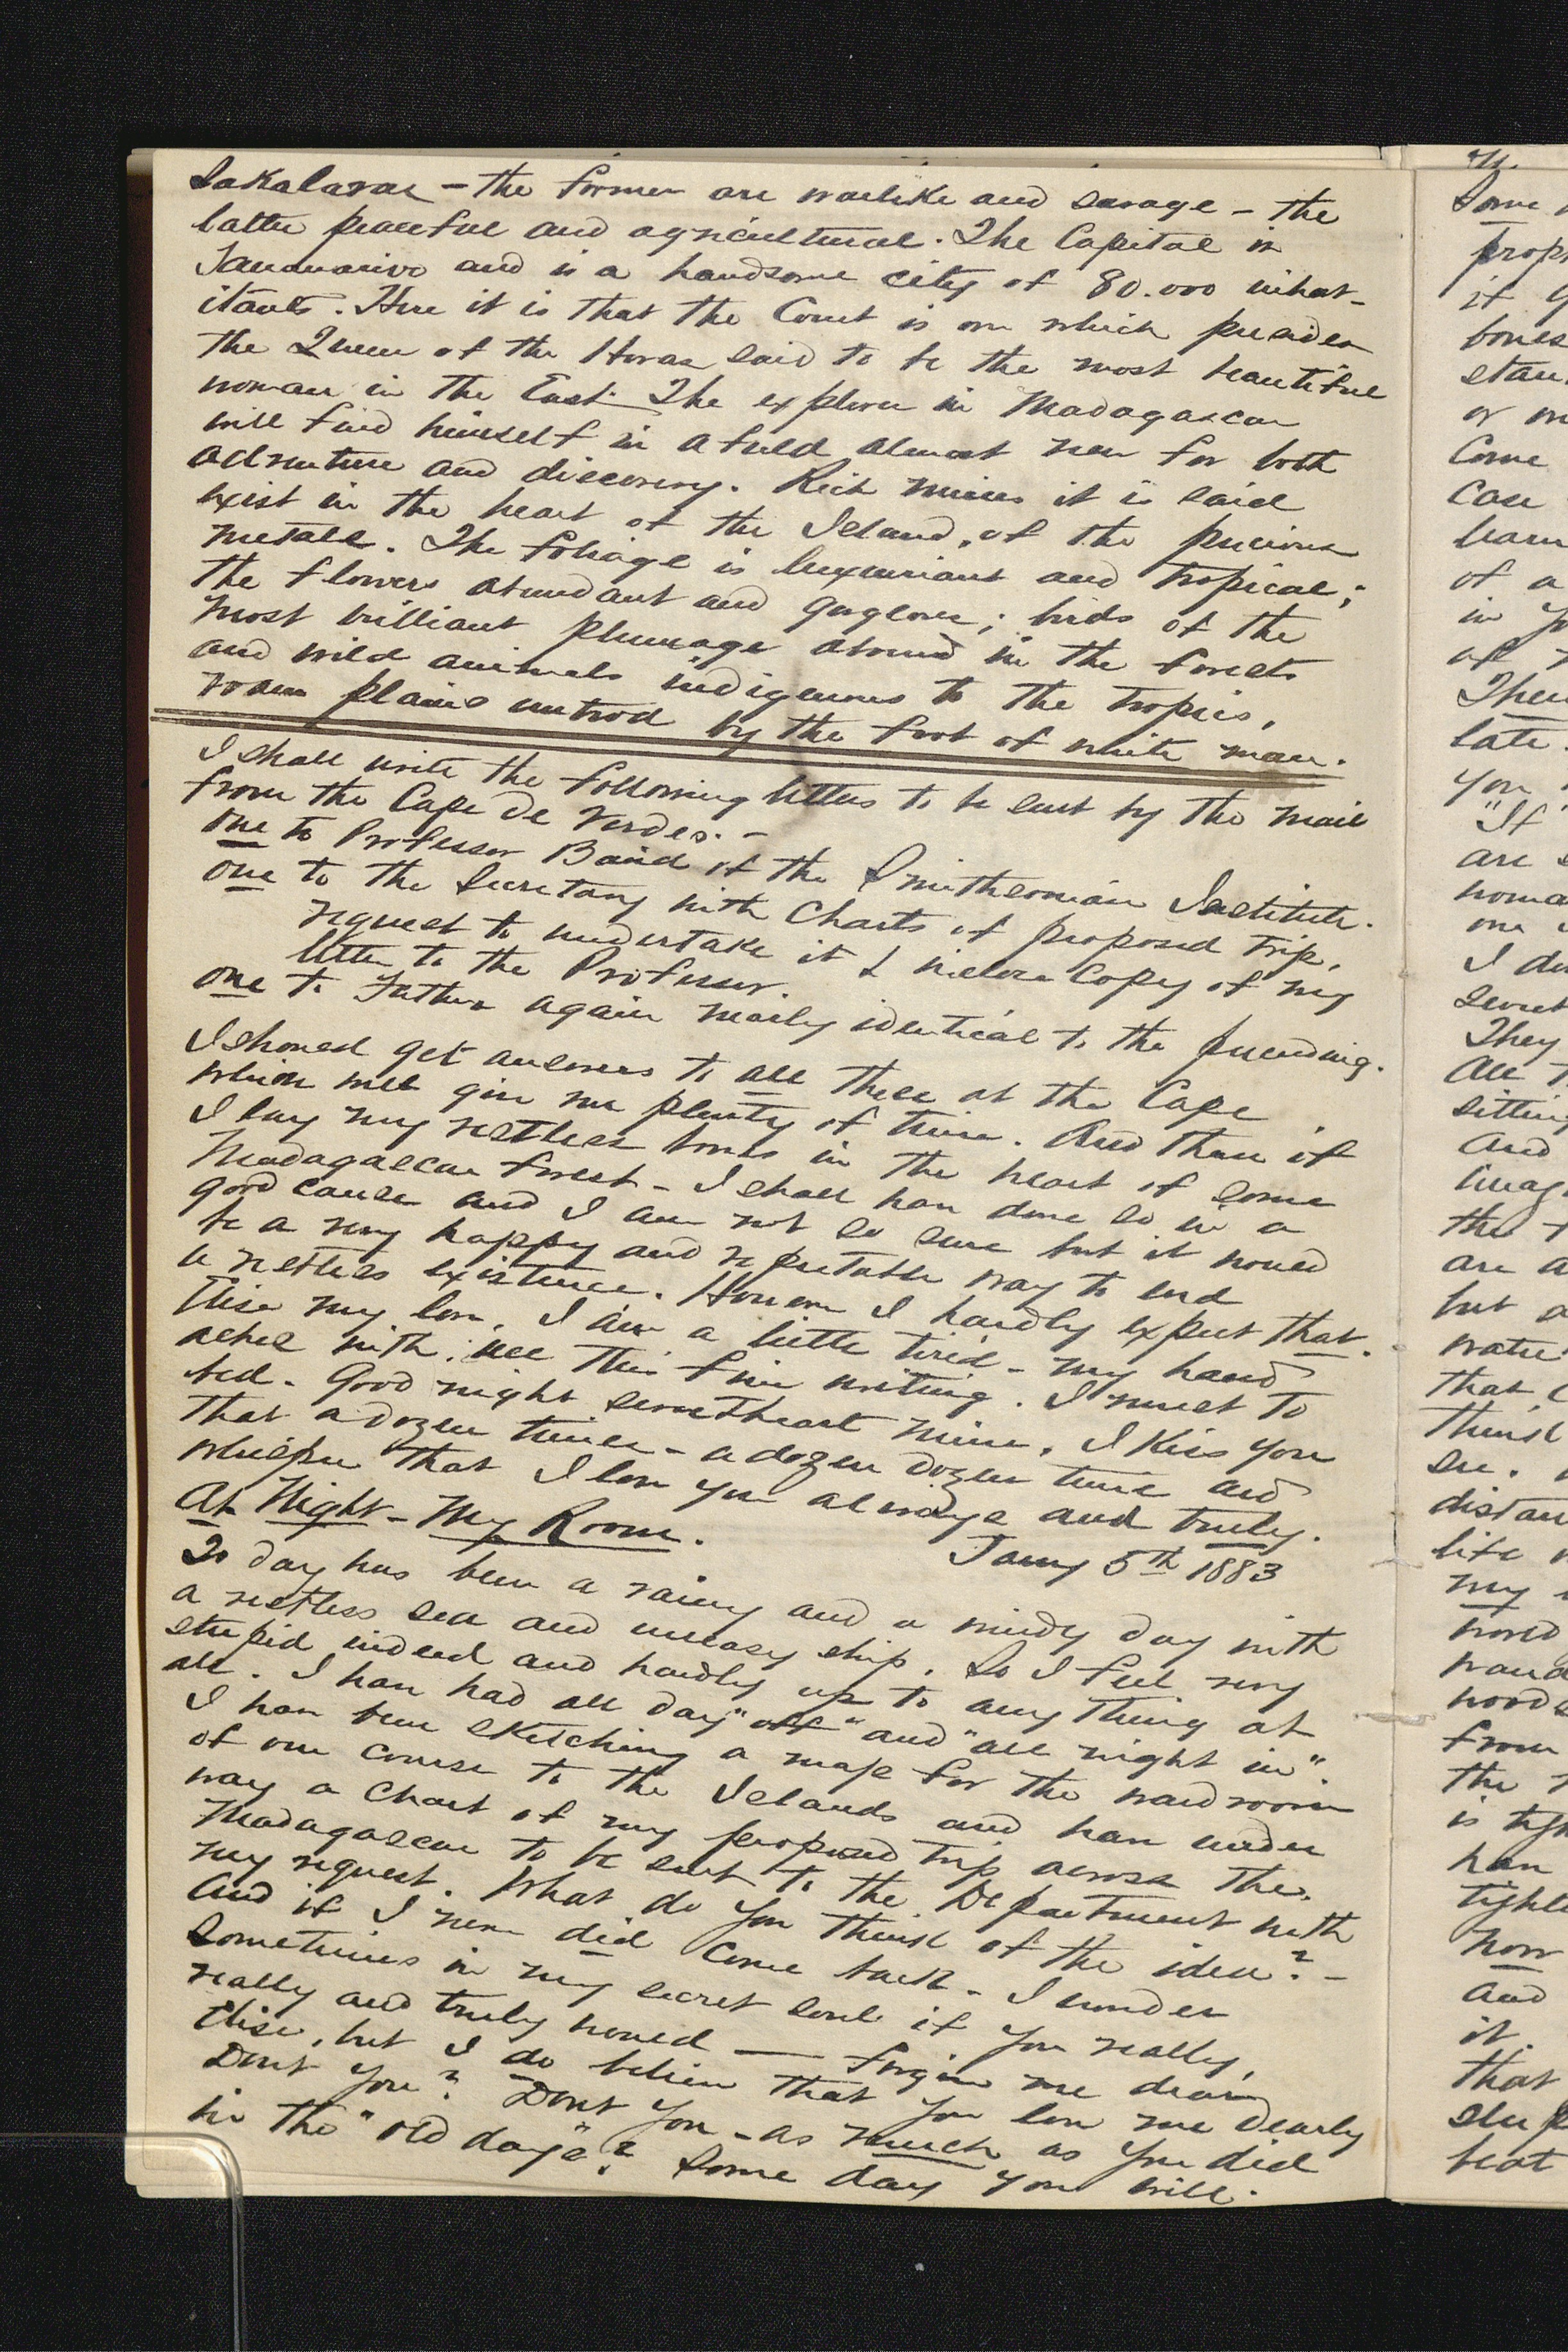 Sakalavas – the former are warlike and savage – the
latter peaceful and agricultural. The Capital is
Tananarivo and is a handsome city of 80.000 inhab-
itants. Here it is that the Court is over which presides
the Queen of the Hovas said to be the most beautiful
woman in the East. The explorer in Madagascar
will find himself in a field almost new for both
adventure and discovery. Rich mines it is said
exist in the heart of the Island, of the precious
metals. The foliage is luxuriant and tropical;
the flowers abundant and gorgeous; birds of the
most brilliant plumage abound in the forests
and wild animals indigenous to the tropics,
roam plains untrod by the foot of white man.
I shall write the following letters to be sent by the mail
from the Cape de Verdes. –
one to Professor Baird of the Smithsonian Institute.
one to the Secretary with Charts of proposed trip,
request to undertake it & inclose Copy of my
letter to the Professor.
one to Father again nearly identical to the preceding.
I should get answers to all these at the Cape
which will give me plenty of time. And then if
I lay my restless bones in the heart of some
Madagascar forest – I shall have done so in a
good cause and I am not so sure but it would
be a very happy and reputable way to end
a restless existence. However I hardly expect that.
Elise my love, I am a little tired – my hand
aches with all this fine writing. I must to
bed. Good night sweetheart mine. I kiss you
that a dozen times – a dozen dozen times and
whisper that I love you always and truly.
At Night – My Room.
Jany 5th 1883
To day has been a rainy and a windy day with
a restless sea and uneasy ship. So I feel very
stupid indeed and hardly up to any thing at
all. I have had all day "off" and "all night in".
I have been sketching a map for the wardroom
of our course to the Islands and have under
way a Chart of my proposed trip across the
Madagascar to be sent to the Department with
my request. What do you think of the idea? –
And if I never did come back – I wonder
sometimes in my secret soul if you really,
really and truly would — forgive me dear
Elise, but I do believe that you love me dearly
Dont you? Dont you – as much as you did
in the "old days"? Some day you will.
71.
Some
prop
it
bones
stan
or
Come
Case
learn
of a
in
at
Then
late.
you
"If
are
woma
one
I do
secret
They
All
sitting
And
imag
the
are a
but a
water
that
think
see.
distan
life
my
world
wand
words
from
the
is
have
tight
now
and
it.
that
sleep
beat